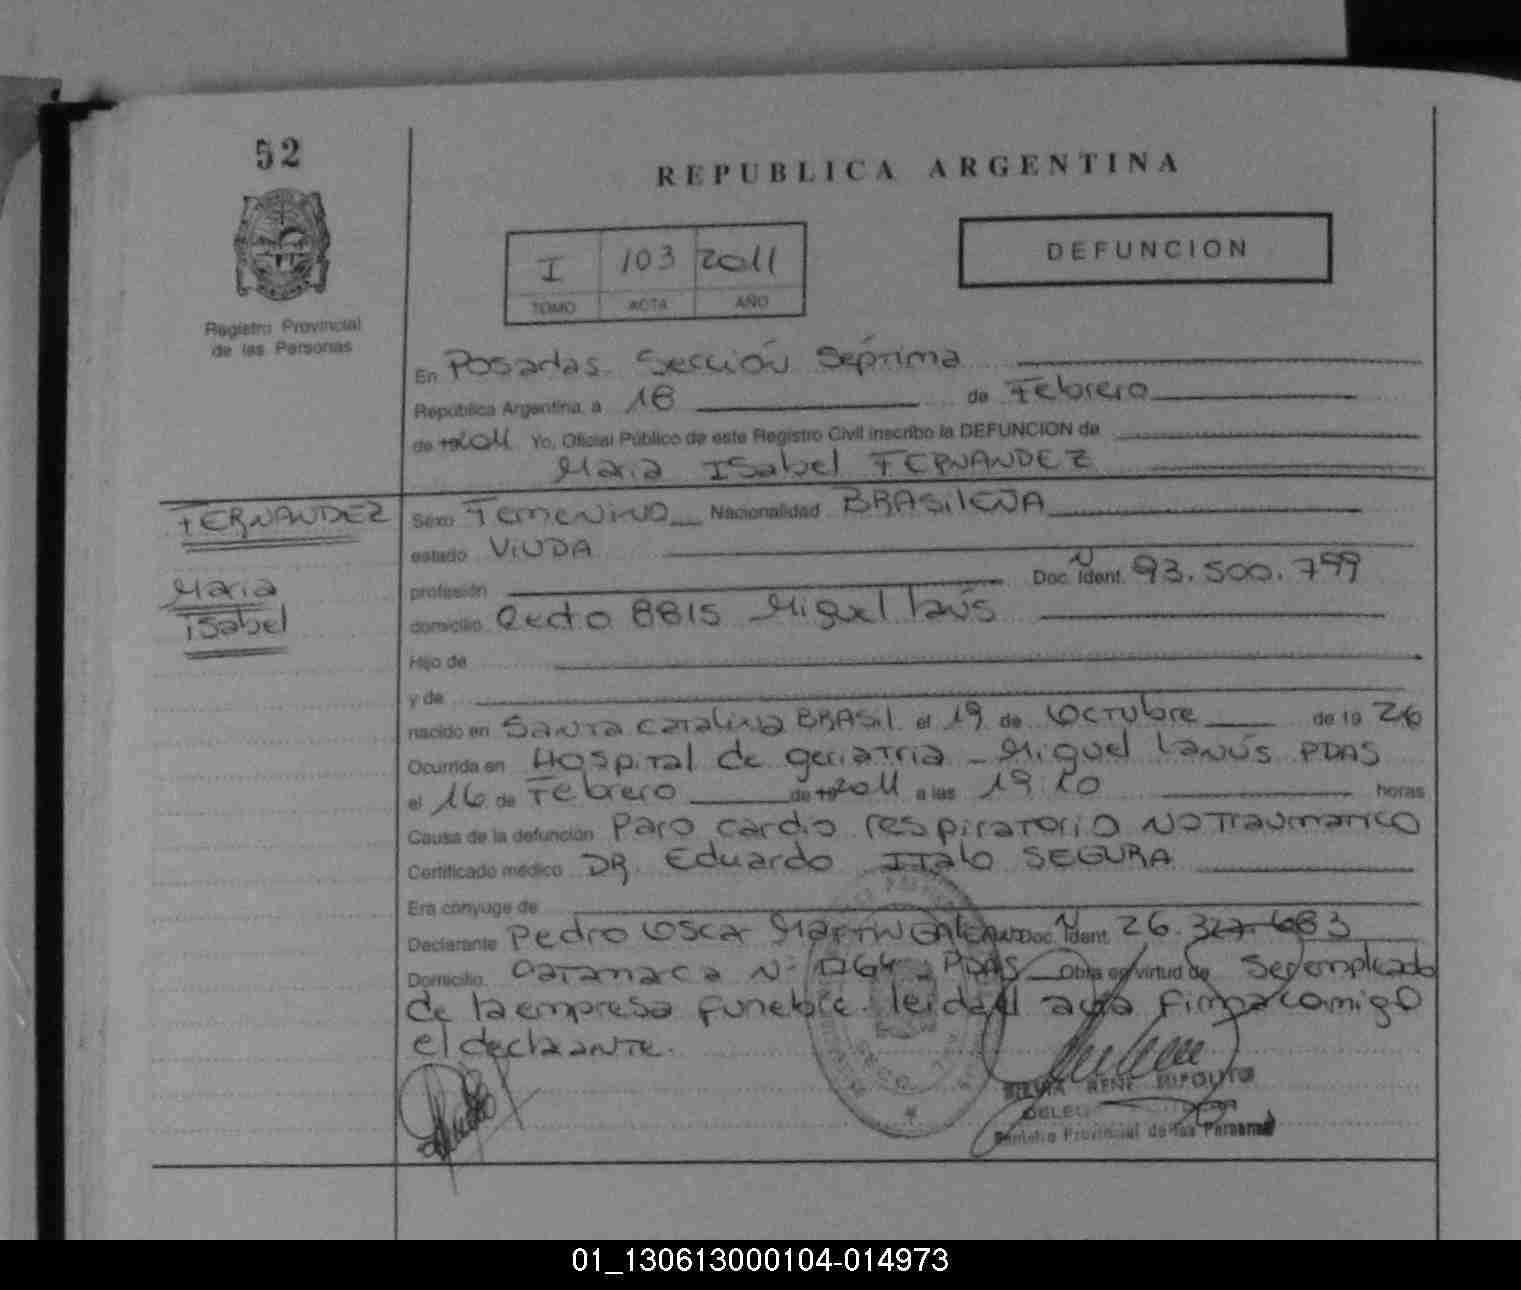 52
REPUBLICA ARGENTINA
Registro Provincial
de las Personas
I 103 2011
TOMO ACTA AÑO
DEFUNCION
En Posadas Sección Séptima
República Argentina, a 18 de Febrero
de 2011 Yo, Oficial Público de este Registro Civil inscribo la DEFUNCION de
Maria Isabel FERNANDEZ
FERNANDEZ
Maria
Isabel
Sexo Femenino Nacionalidad BRASILEÑA
estado VIUDA
profesión Doc. Nº Ident. 93.500.799
domicilio 8815 Miguel lanús
Hijo de
y de
nacido en Santa Catalina BRASIL el 19 de Octubre de 19 26
Ocurrida en Hospital de geriatria - Miguel Lanús PDAS
el 16 de Febrero de 2011 a las 19:10 horas
Causa de la defunción Paro cardio respiratorio NO Traumatico
Certificado médico DR. Eduardo ITalo SEGURA
Era cónyuge de
Declarante Pedro Oscar Martin Doc. Nº Ident. 26.327.683
Domicilio PDAS Obra en virtud de Ser empleado
de la empresa funebre. leida el acta firma comigo
el declarante.
SILVIA RENE HIPOLITO
Registro Provincial de las Personas
01_130613000104-014973